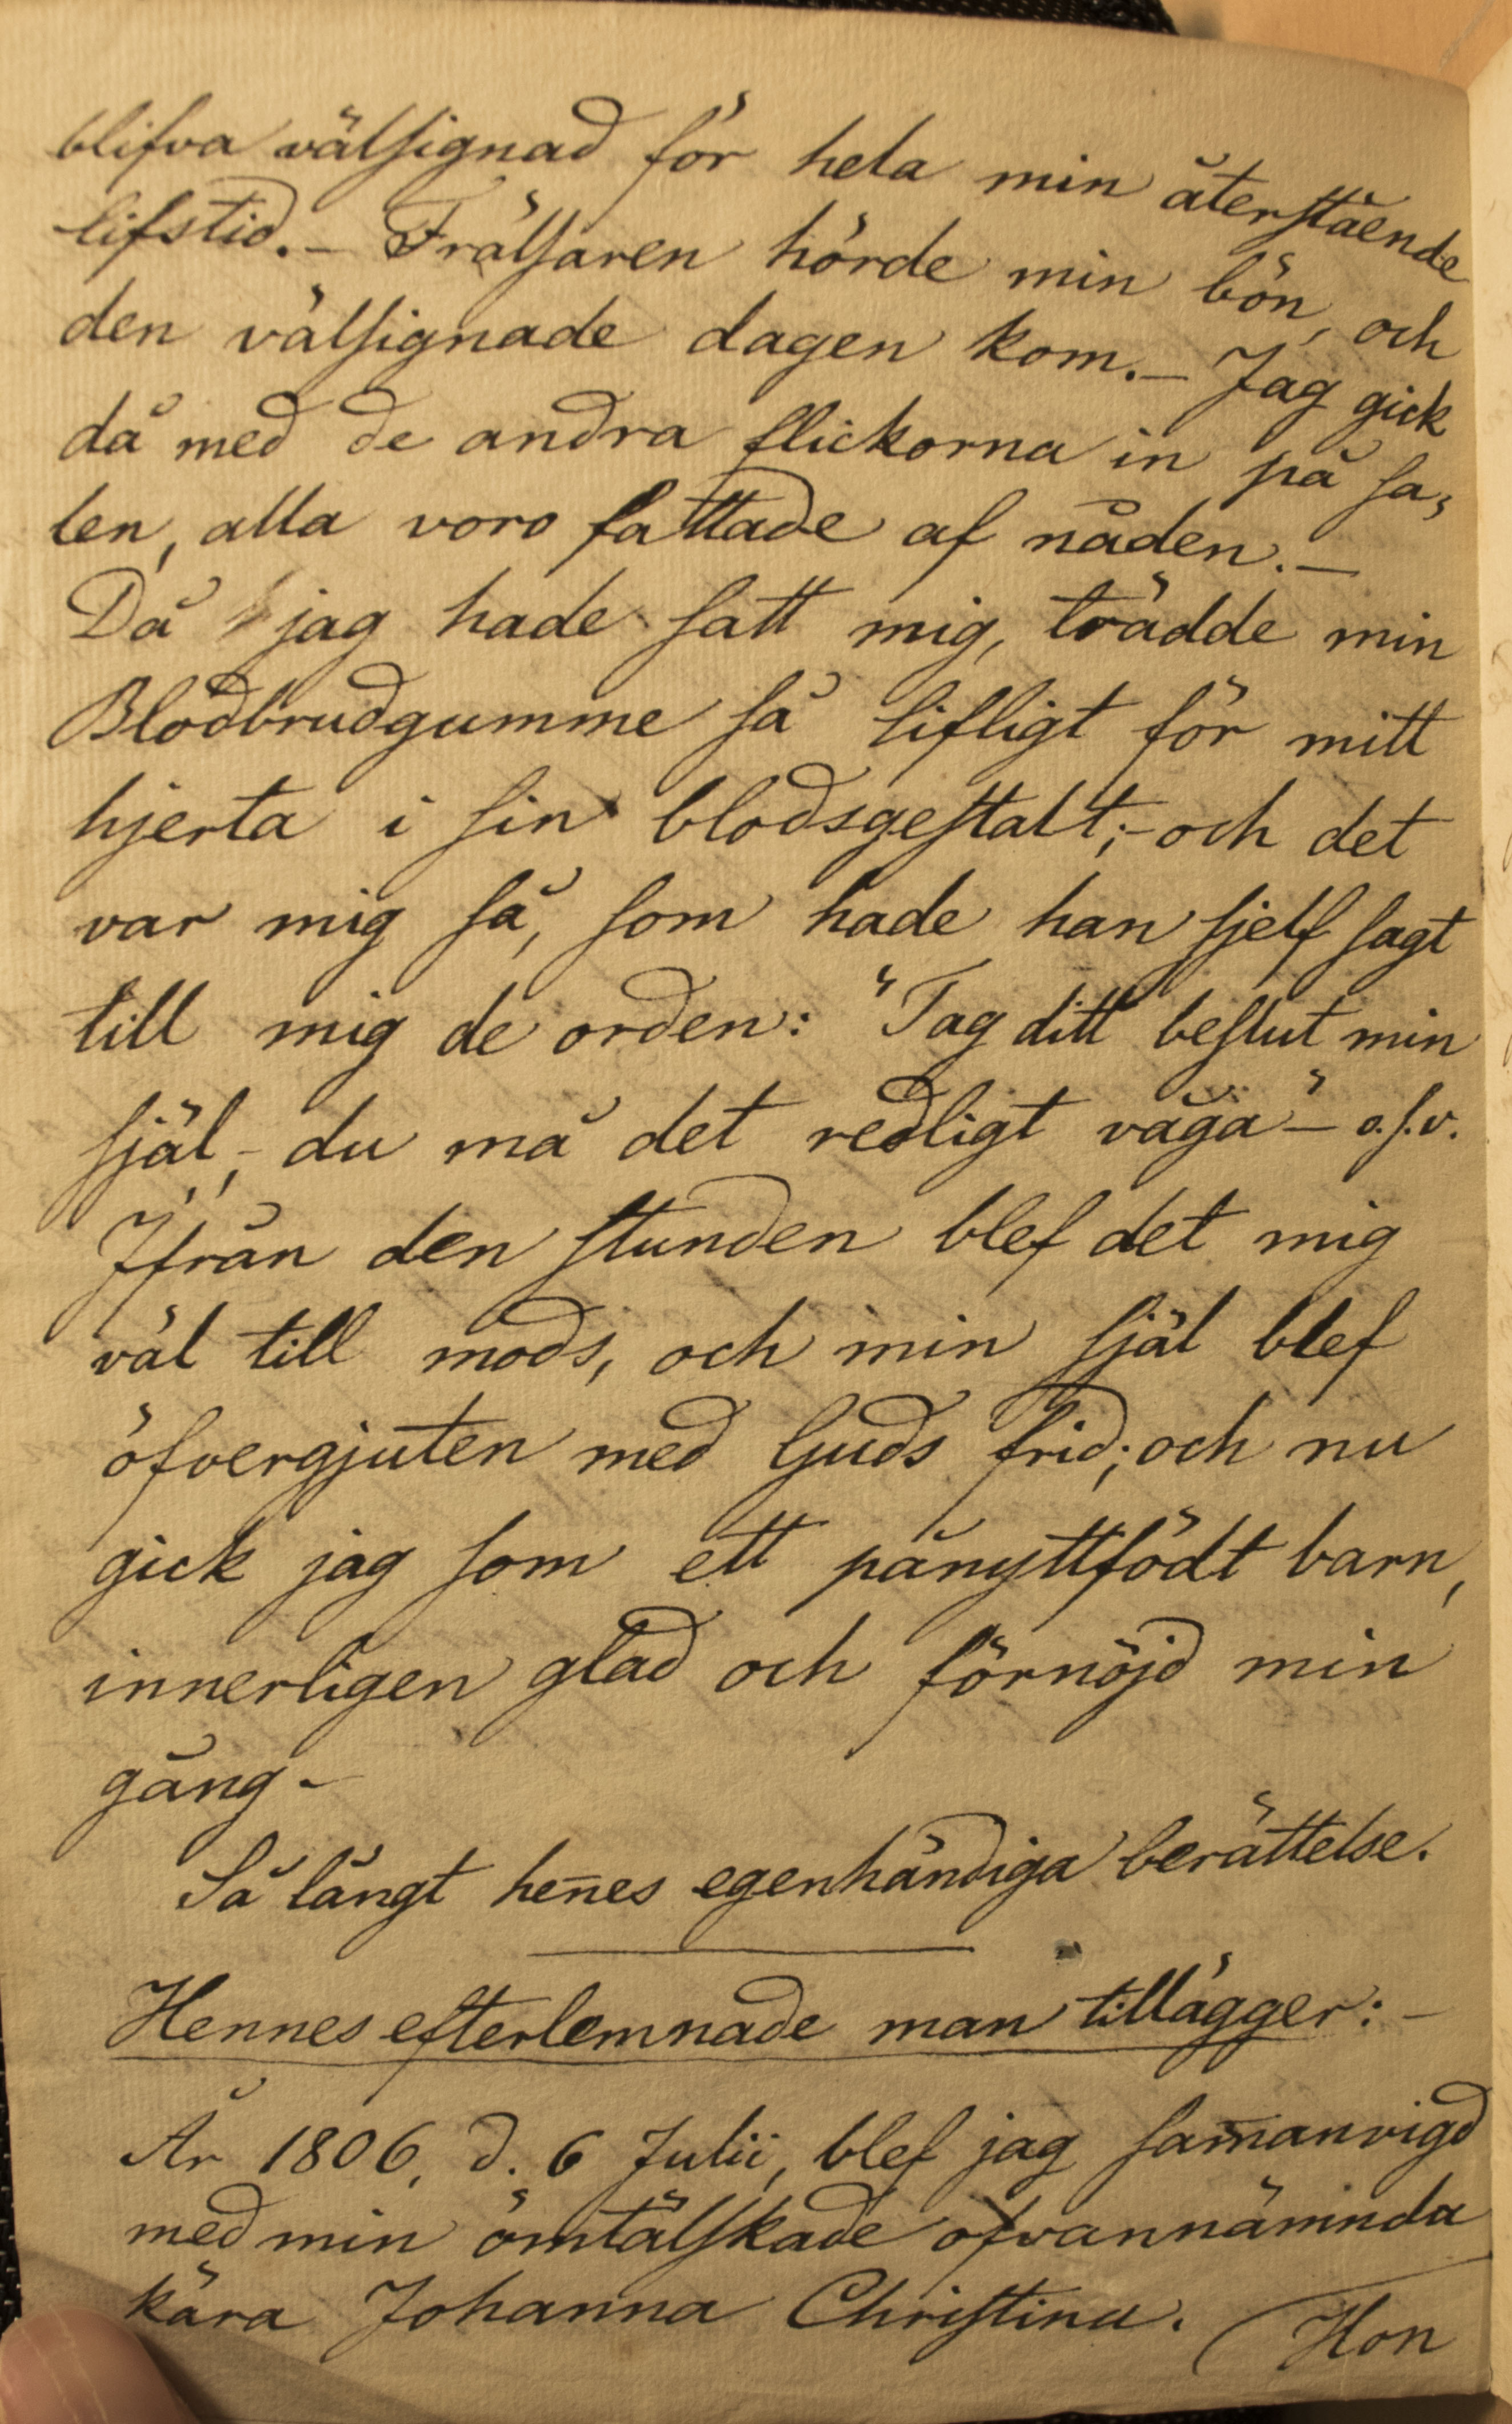 blifva välsignad för hela min återstående
lifstid. – Frälsaren hörde min bön, och
den välsignade dagen kom. – Jag gick
då med de andra flickorna in på sa-
len, alla voro fattade af nåden. –
Då jag hade satt mig, trädde min
Blodbrudgumme så lifligt för mitt
hjerta i sin blodsgestalt; – och det
var mig så, som hade han sjelf sagt
till mig de orden: "Tag ditt beslut min
själ, – du må det redligt våga" – o.s.v.
Ifrån den stunden blef det mig
väl till mods, och min själ blef
öfvergjuten med Guds frid; och nu
gick jag som ett pånyttfödt barn,
innerligen glad och förnöjd min
gång –
Så långt hen̄es egenhändiga berättelse.
Hennes efterlemnade man tillägger: –
År 1806, d. 6 Julii, blef jag sam̄anvigd
med min ömtälskade ofvannämnda
kära Johanna Christina. (Hon